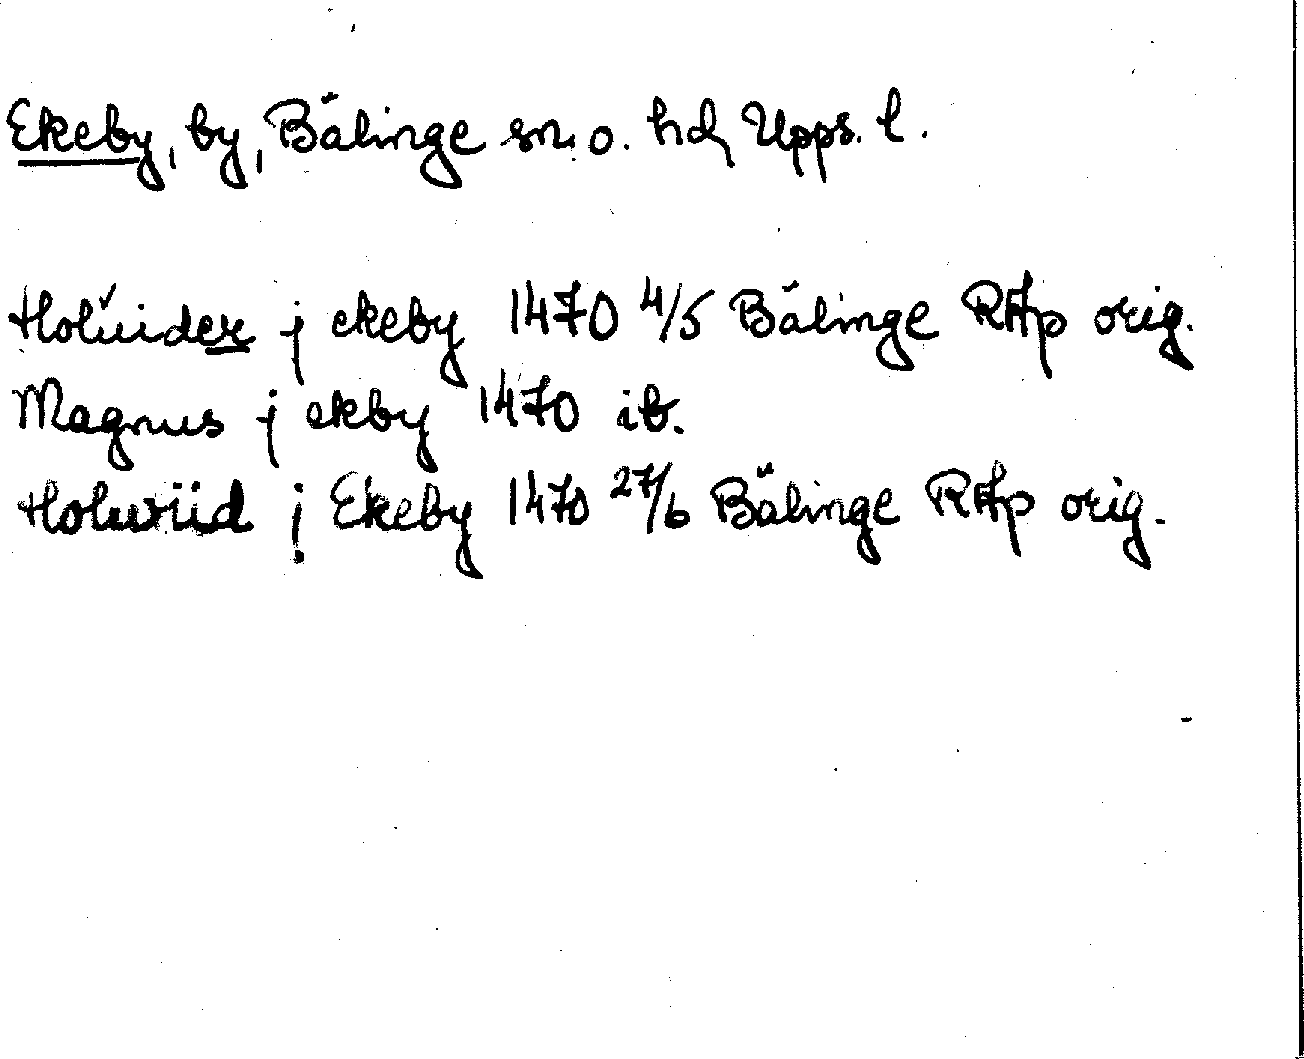 Ekeby, by, Bälinge sn. o. hd, Upps. l.
Holuider j ekeby 1470 4/5 Bälinge RAp orig.
Magnus j ekby 1470 ib.
Holwiid j Ekeby 1470 27/6 Bälinge RAp orig.